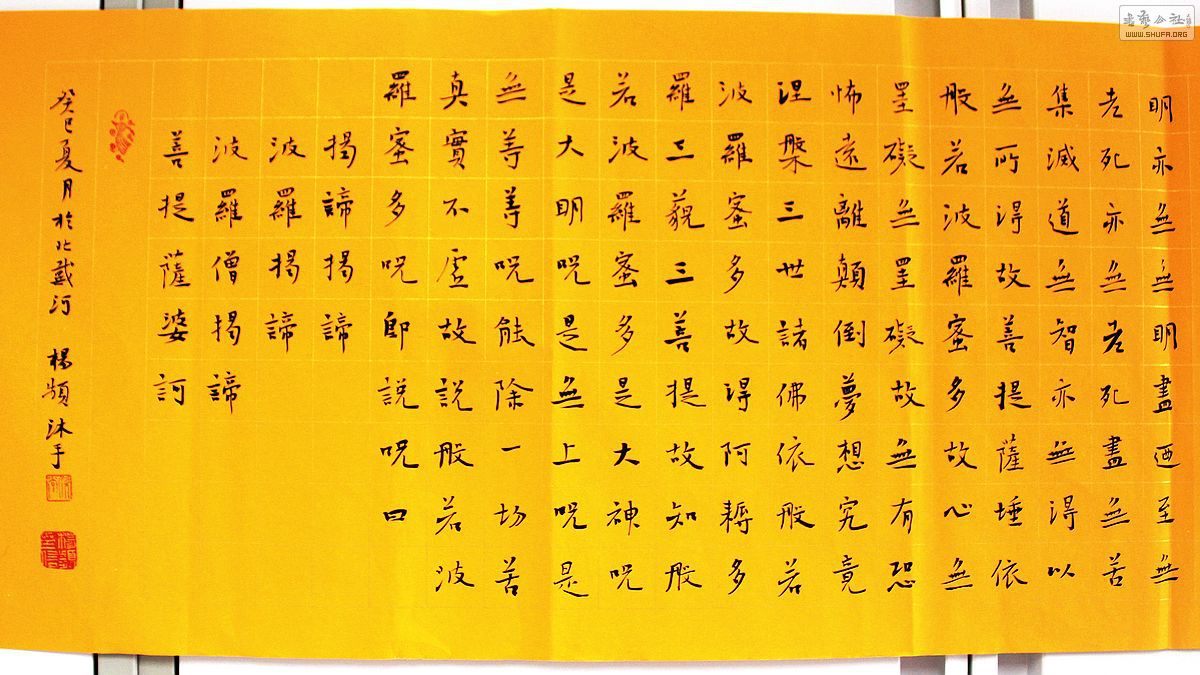 明亦無無明盡迺至無
老死亦無老死盡無苦
集滅道無智亦無得以
無所得故菩提薩埵依
般若波羅蜜多故心無
罣礙無罣礙故無有恐
怖遠離顛倒夢想究竟
涅槃三世諸佛依般若
波羅蜜多故得阿耨多
羅三藐三菩提故知般
若波羅蜜多是大神咒
是大明咒是無上咒是
無等等咒能除一切苦
真實不虛故說般若波
羅蜜多咒即說咒曰
揭諦揭諦
波羅揭諦
波羅僧揭諦
菩提薩婆訶
癸巳夏月於北戴河 楊頻沐手
WWW.SHUFA.ORG